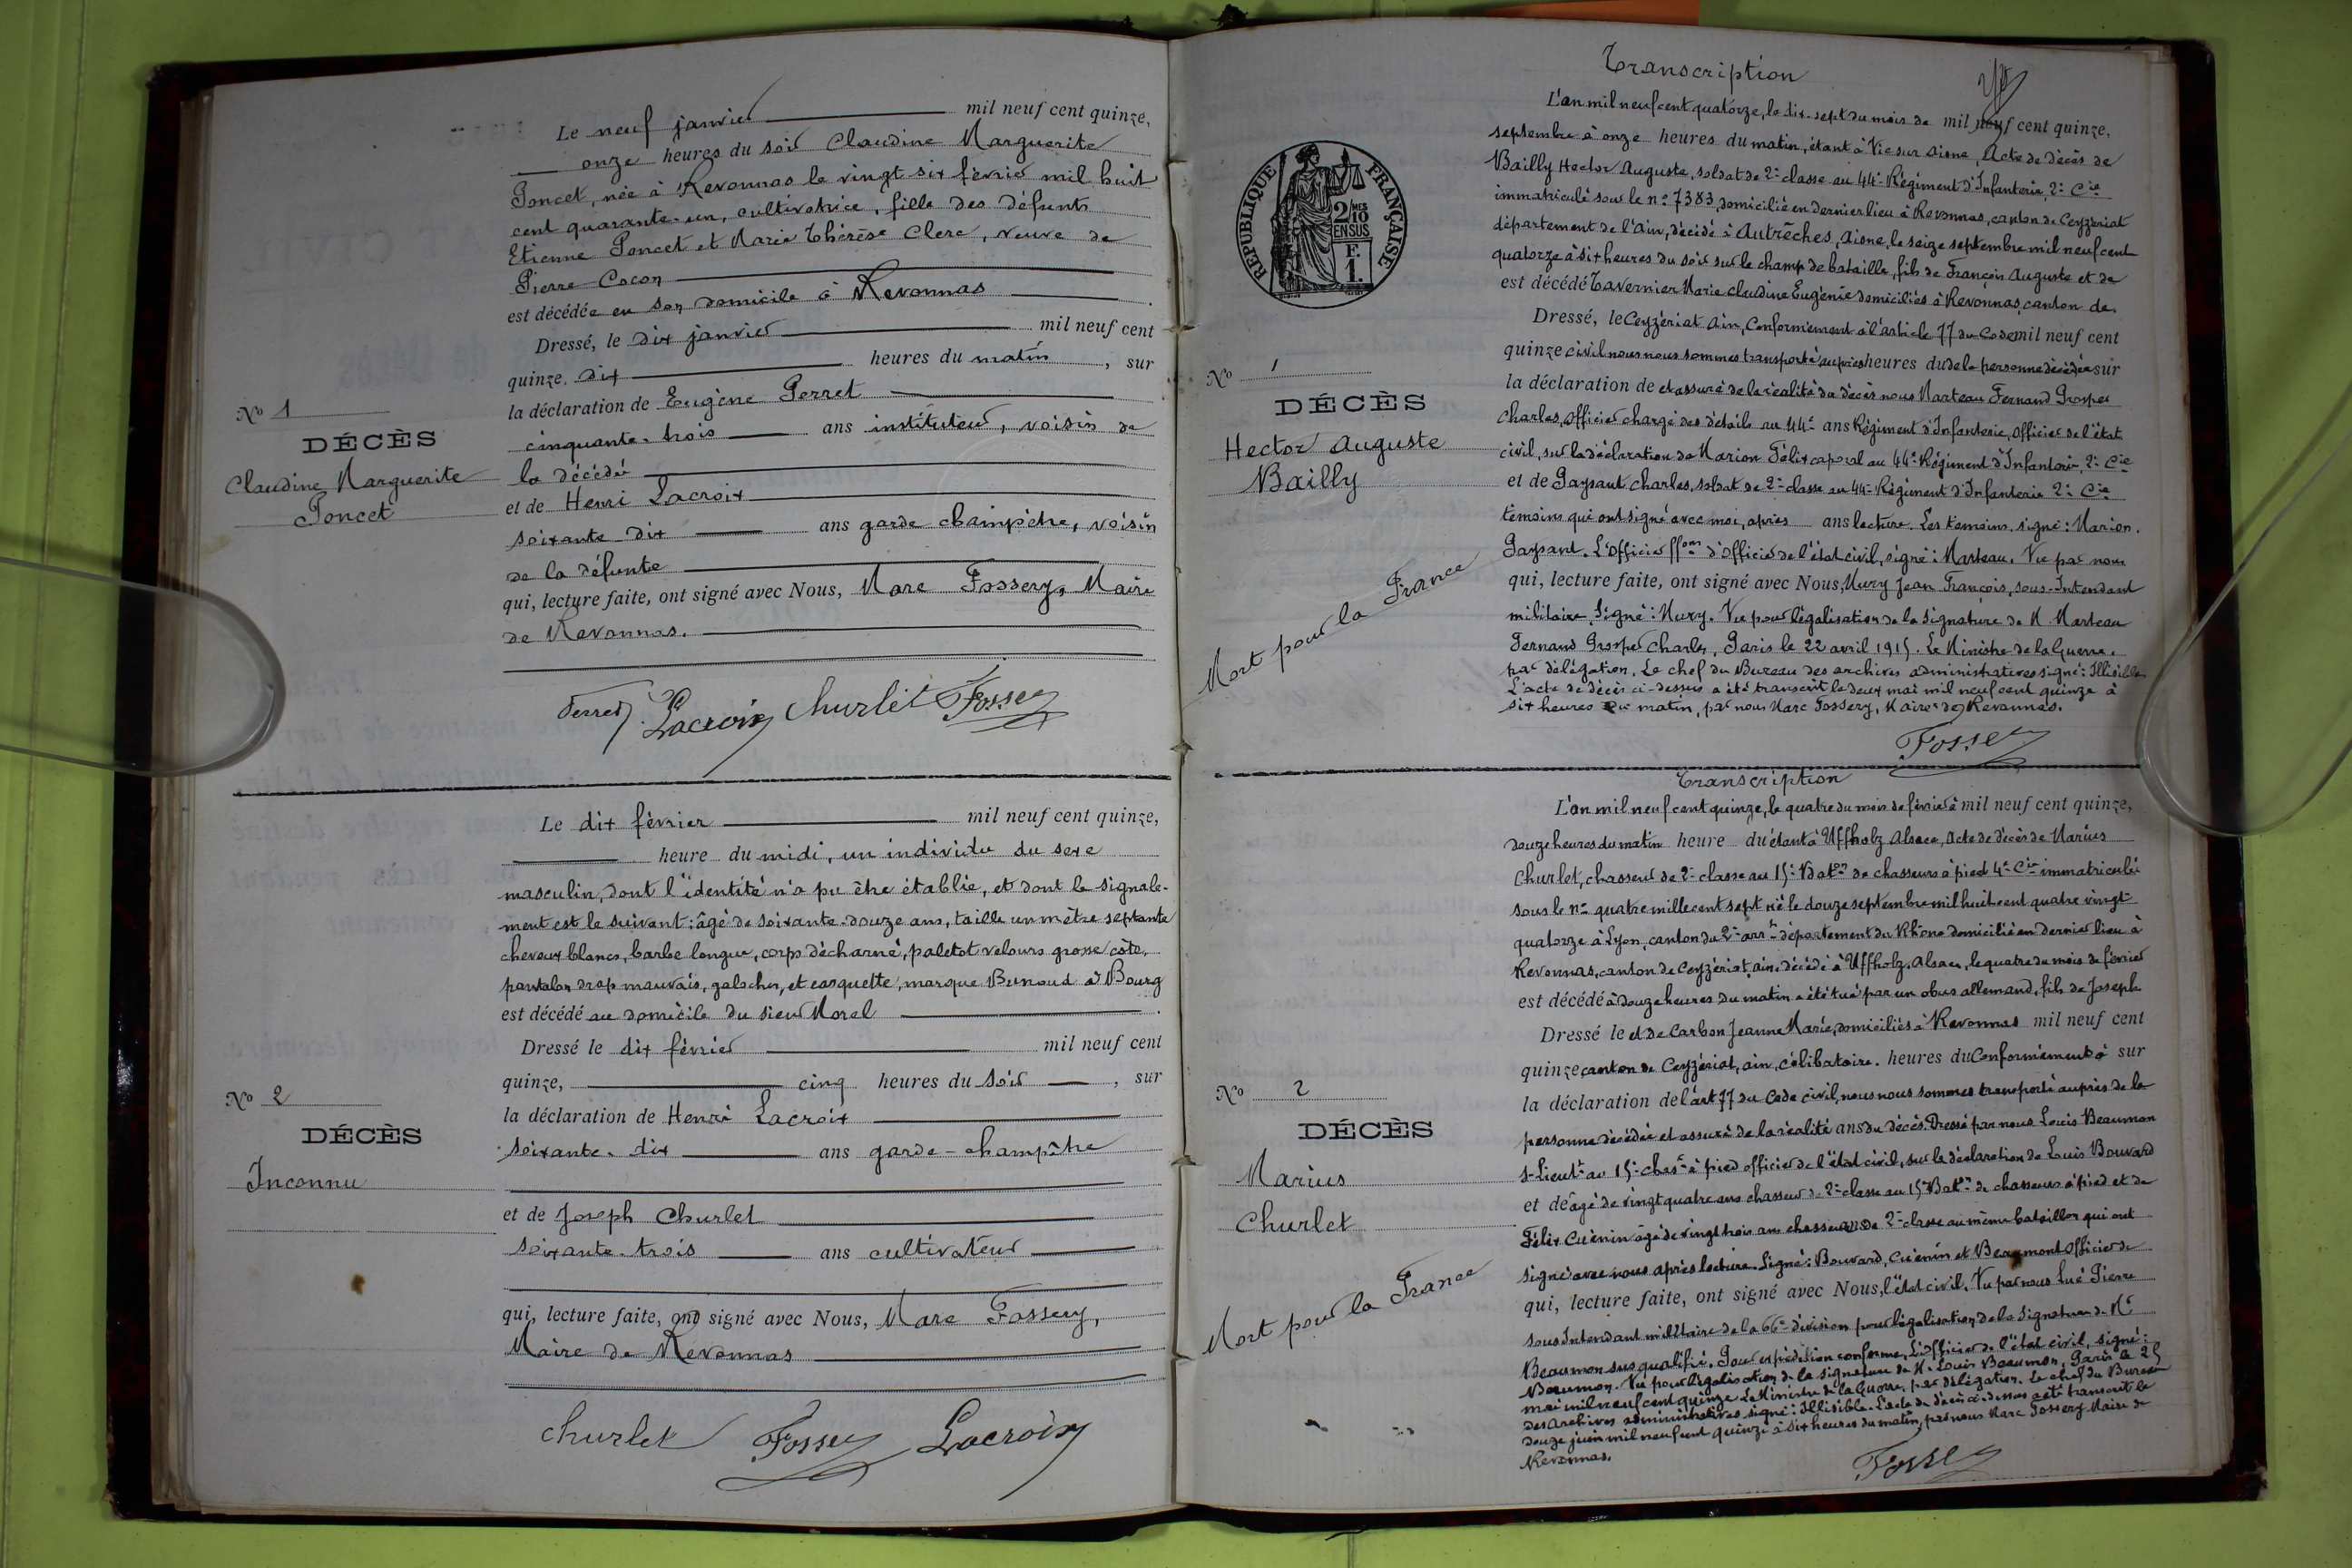 Le neuf janvier mil neuf cent quinze,
onze heures du soir Claudine Marguerite
Poncet, née à Revonnas le vingt six février mil huit
cent quarante-un, cultivatrice, fille des défunts
Etienne Poncet et Marie Thérèse Clerc, veuve de
Pierre Cocon
est décédée en son domicile à Revonnas.
Dressé, le dix janvier mil neuf cent
quinze, dix heures du matin, sur
la déclaration de Eugène Perret
cinquante-trois ans instituteur, voisin de
la décédée
et de Henri Lacroix
soixante dix ans garde champêtre, voisin
de la défunte
qui, lecture faite, ont signé avec Nous, Marc Fossery, Maire
de Revonnas.
Perret Lacroix Churlet Fossery
No 1
DÉCÈS
Claudine Marguerite
Poncet
Le dix février mil neuf cent quinze,
heure du midi, un individu du sexe
masculin, dont l'identité n'a pu être établie, et dont le signale-
ment est le suivant: âgé de soixante-douze ans, taille un mètre septante
cheveux blancs, barbe longue, corps décharné, paletot velours grosse côte,
pantalon drap mauvais, galoches, et casquette, marque Bunoud à Bourg
est décédé au domicile du sieur Morel.
Dressé le dix février mil neuf cent
quinze, cinq heures du soir, sur
la déclaration de Henri Lacroix
soixante-dix ans garde-champêtre
et de Joseph Churlet
soixante-trois ans cultivateur
qui, lecture faite, ont signé avec Nous, Marc Fossery,
Maire de Revonnas
Churlet Fossery Lacroix
No 2
DÉCÈS
Inconnu
Transcription
L'an mil neuf cent quatorze, le dix-sept du mois de mil neuf cent quinze,
septembre à onze heures du matin, étant à Vic sur Aisne, Acte de décès de
Bailly Hector Auguste, soldat de 2e classe au 44e Régiment d'Infanterie, 2e Cie
immatriculé sous le no 7383, domicilié en dernier lieu à Revonnas, canton de Ceyzériat
département de l'Ain, décédé à Autrèches, Aisne, le seize septembre mil neuf cent
quatorze à six heures du soir sur le champ de bataille, fils de François Auguste et de
est décédé Tavernier Marie Claudine Eugénie domiciliés à Revonnas, canton de
Dressé, le Ceyzériat Ain, Conformément à l'article 77 du Code mil neuf cent
quinze civil nous nous sommes transporté auprès heures du de la personne décédée sur
la déclaration de et assuré de la réalité du décès nous Marteau Fernand Prosper
Charles, officier chargé des détails au 44e ans Régiment d'Infanterie, officier de l'état
civil, sur la déclaration de Marion Félix caporal au 44e Régiment d'Infanterie, 2e Cie
et de Paysaut Charles, soldat de 2e classe au 44e Régiment d'Infanterie 2e Cie
témoins qui ont signé avec moi, après ans lecture. Les témoins, signé: Marion.
Paysant. L'officier ffons d'officier de l'état civil, signé: Marteau. Vu par nous
qui, lecture faite, ont signé avec Nous, Mury Jean François, sous-Intendant
militaire, signé: Mury. Vu pour légalisation de la signature de M. Marteau
Fernand Prosper Charles, Paris le 22 avril 1915. Le Ministre de la Guerre.
par délégation. Le chef du Bureau des archives administratives signé: Illisible
L'acte de décès ci-dessus a été transcrit le deux mai mil neuf cent quinze à
six heures du matin, par nous Marc Fossery, Maire de Revonnas.
Fossery
RÉPUBLIQUE FRANÇAISE
2 MES 10
EN SUS
F.
1.
No 1
DÉCÈS
Hector Auguste
Bailly
Mort pour la France
Transcription
L'an mil neuf cent quinze, le quatre du mois de février à mil neuf cent quinze,
douze heures du matin heure du étant à Uffholz Alsace, Acte de décès de Marius
Churlet, chasseur de 2e classe au 15e Baton de chasseurs à pied 4e Cie immatriculé
sous le no quatre mille cent sept né le douze septembre mil huit cent quatre vingt
quatorze à Lyon, canton du 2e arrt département du Rhône domicilié en dernier lieu à
Revonnas, canton de Ceyzériat, Ain, décédé à Uffholz, Alsace, le quatre du mois de février
est décédé à douze heures du matin a été tué par un obus allemand, fils de Joseph
Dressé le et de Carbon Jeanne Marie, domiciliés à Revonnas mil neuf cent
quinze canton de Ceyzériat, Ain, célibataire. heures du Conformément à sur
la déclaration de l'art 77 du Code civil, nous nous sommes transporté auprès de la
personne décédée et assuré de la réalité ans du décès. Dressé par nous Louis Beaumon
S-Lieutt au 15e chasr à pied officier de l'état civil, sur la déclaration de Louis Bouvard
et de âgé de vingt quatre ans chasseur de 2e classe au 15e Baton de chasseurs à pied et de
Félix Cuénin âgé de vingt trois ans chasseur ans de 2e classe au même bataillon qui ont
signé avec nous après lecture. Signé: Bouvard, Cuénin et Beaumont officier de
qui, lecture faite, ont signé avec Nous, l'état civil. Vu par nous Lué Pierre
sous Intendant militaire de la 66e division pour légalisation de la signature de Mr
Beaumon sus qualifié. Pour expédition conforme, L'officier de l'état civil, signé:
Beaumon. Vu pour légalisation de la signature de M. Louis Beaumon, Paris le 25
mai mil neuf cent quinze Le Ministre de la Guerre, par délégation. Le chef du Bureau
des archives administratives signé: Illisible. L'acte de décès ci-dessus a été transcrit le
douze juin mil neuf cent quinze à six heures du matin, par nous Marc Fossery Maire de
Revonnas.
Fossery
No 2
DÉCÈS
Marius
Churlet
Mort pour la France